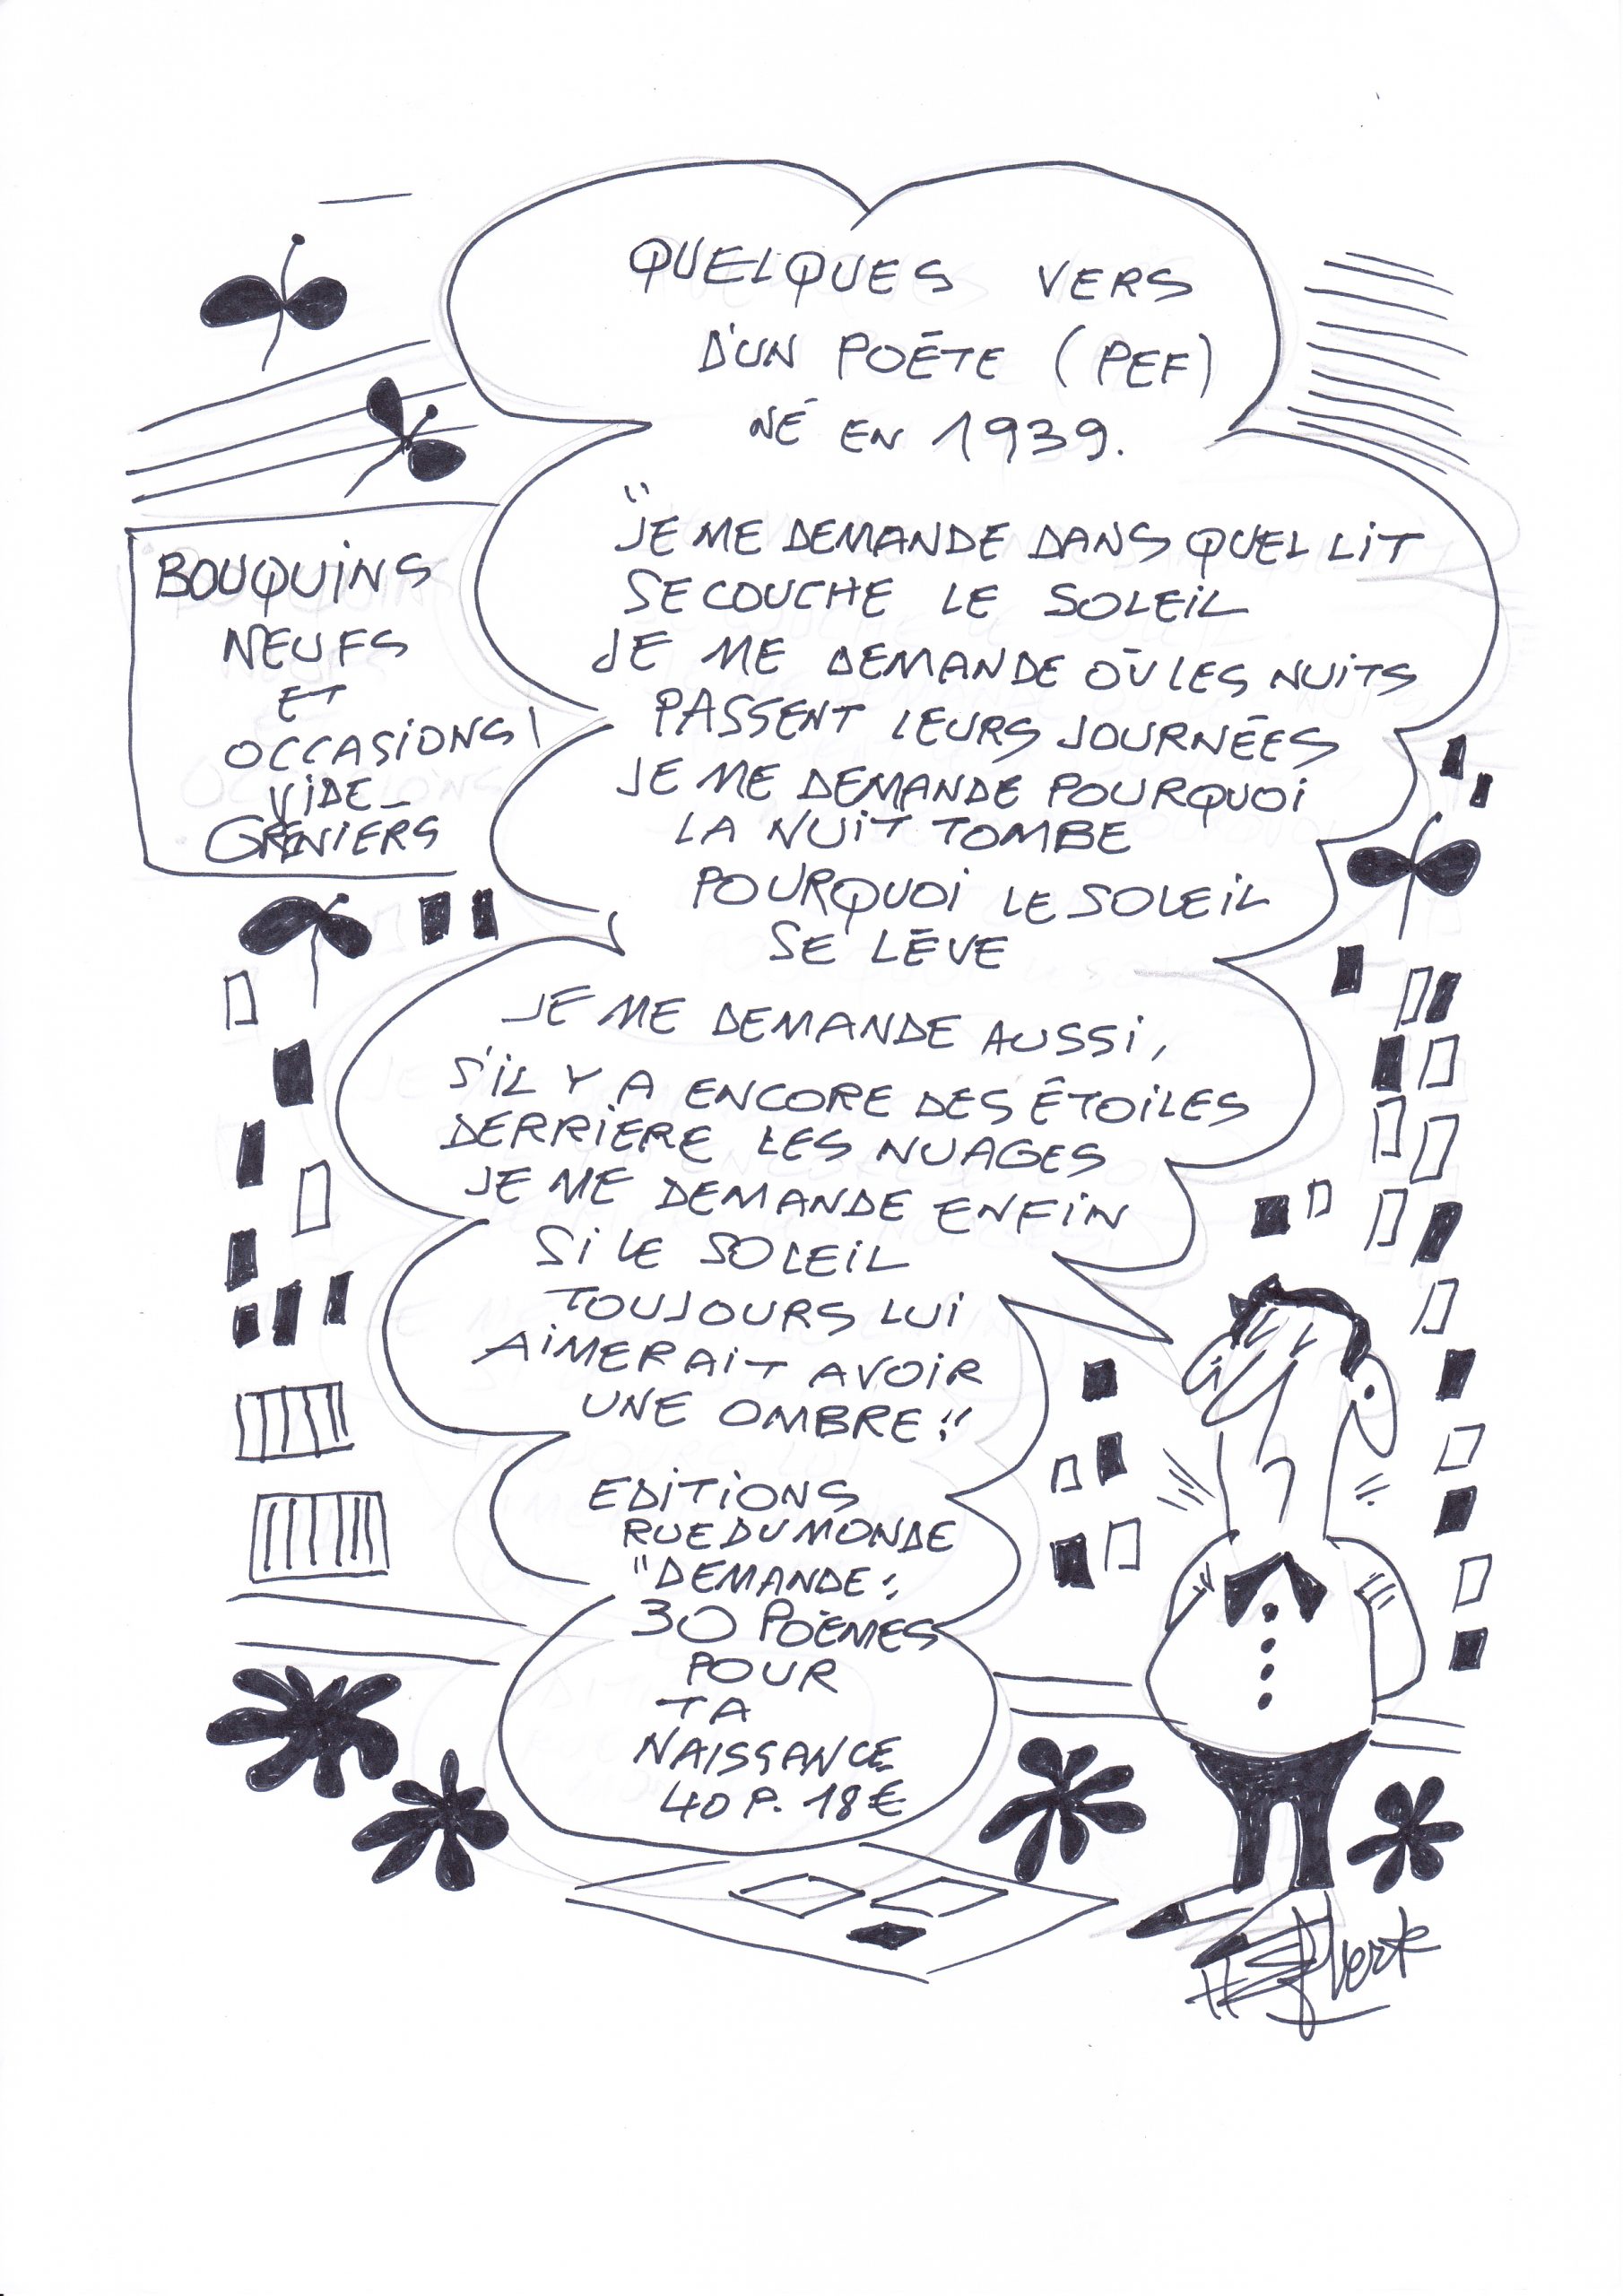 QUELQUES VERS
D'UN POÈTE (PEF)
NÉ EN 1939.
"JE ME DEMANDE DANS QUEL LIT
SE COUCHE LE SOLEIL
JE ME DEMANDE OÙ LES NUITS
PASSENT LEURS JOURNÉES
JE ME DEMANDE POURQUOI
LA NUIT TOMBE
POURQUOI LE SOLEIL
SE LÈVE
JE ME DEMANDE AUSSI,
S'IL Y A ENCORE DES ÉTOILES
DERRIERE LES NUAGES
JE ME DEMANDE ENFIN
SI LE SOLEIL
TOUJOURS LUI
AIMERAIT AVOIR
UNE OMBRE!"
EDITIONS
RUE DU MONDE
"DEMANDE:
30 POÈMES
POUR
TA
NAISSANCE
40 P. 18€
BOUQUINS
NEUFS
ET
OCCASIONS
VIDE-
GRENIERS